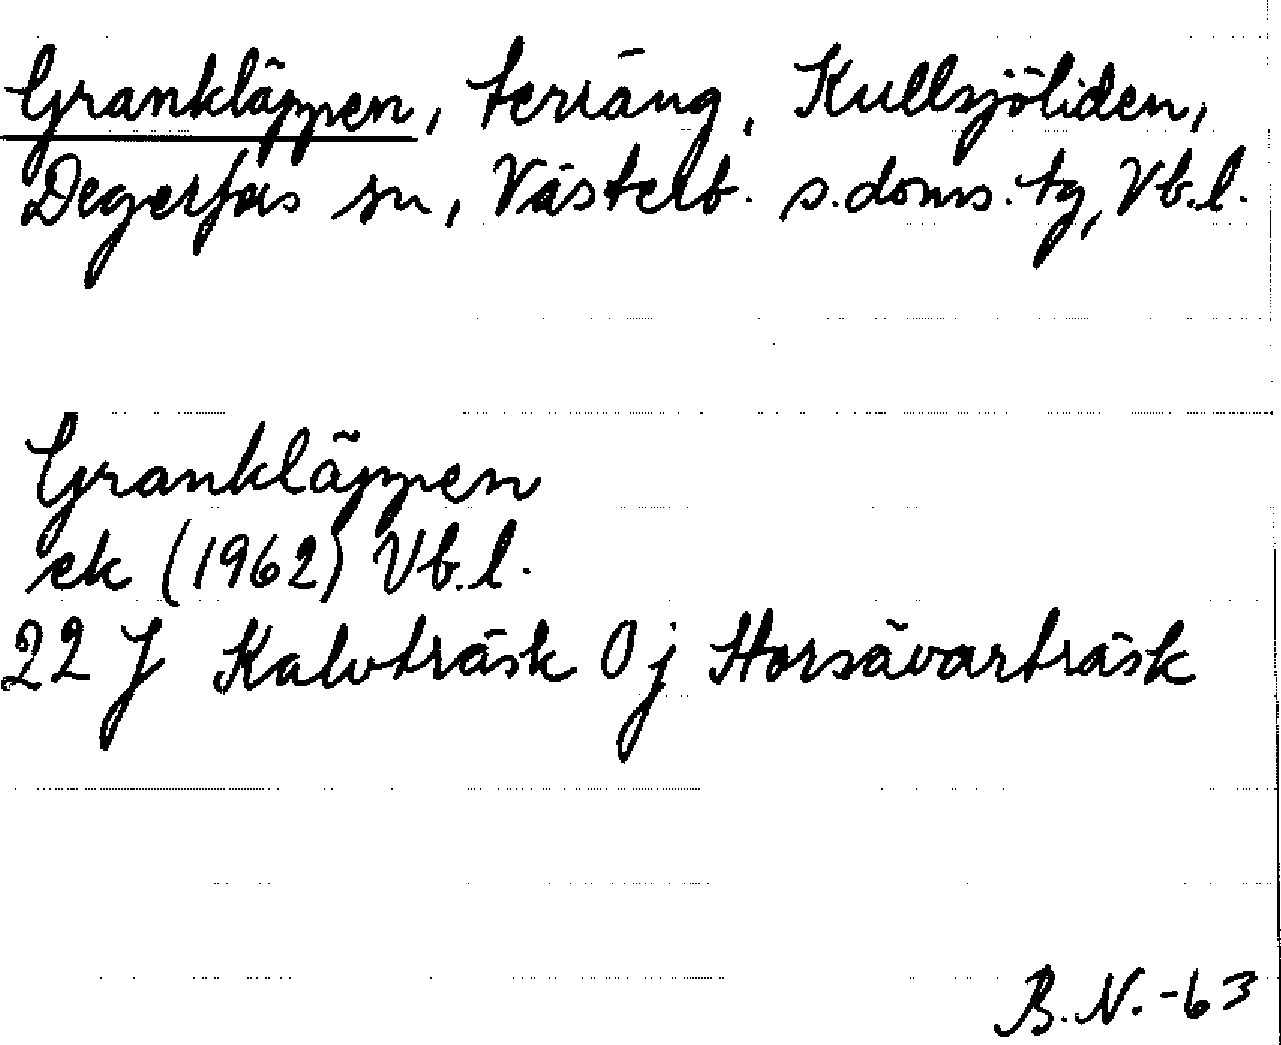 Grankläppen, terräng, Kullsjöliden,
Degerfors sn, Västerb. s.doms. tg, Vb.l.
Grankläppen
ek (1962) Vb.l.
22 J Kalvträsk 0 j Horsåvarträsk
B.N. -63